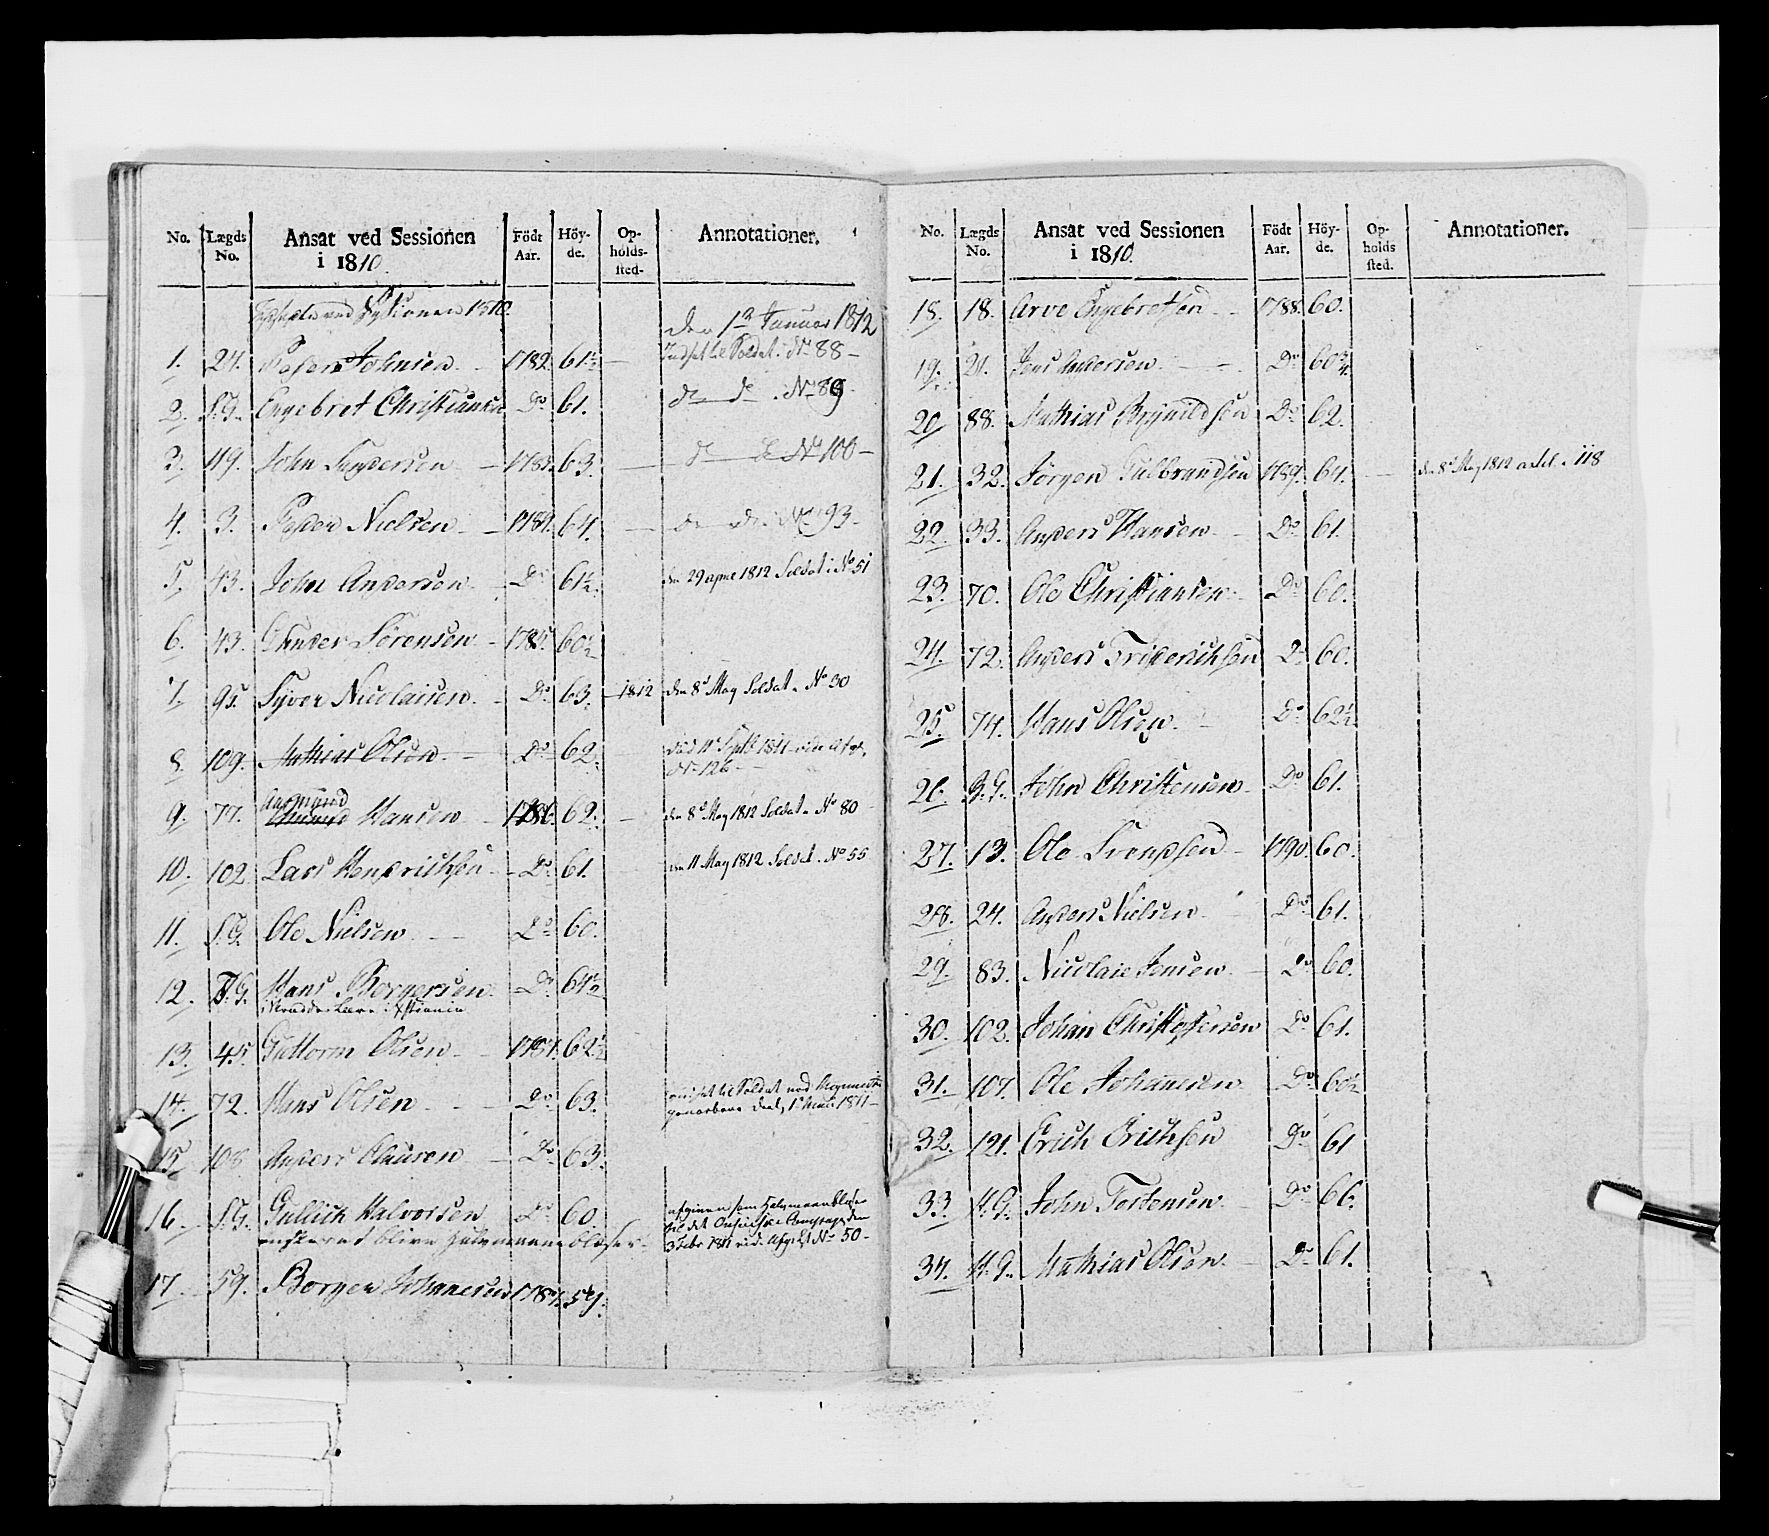 No. Lægds No. Ansat ved Sessionen i 1810. Födt Aar. Höy- de. Op- holds- sted- Annotationer.
ved Sessionen 1810. den 1ste Januar 1812
1. 24. Peder Johnsen 1782. 61½ Indsat til Soldat i No 88
2. S.G. Engebret Christiansen Do 61. do do No 89
3. 119. John Andersen 63. do do No 100
4. 3. Peder Nielsen 1784. 64. do do No 93
5. 43. John Andersen Do 61½ den 29 april 1812 Soldat i No 51
6. 43. Gunder Sörensen 1785. 60½
7. 95. Syver Nicolaisen Do 63. 1812 den 8de May Soldat No 30
8. 109. Mathias Olsen Do 62. død 11 Septb 1811 vide Afg.
No 126
Aasmund
9. 77. Hansen 1786. 62. den 8de May 1812 Soldat No 80
10. 102. Lars Hendrichsen Do 61. den 11 May 1812 Soldat No 55
11. S.G. Ole Nielsen Do 60.
12. S.G. Hans Borgersen Do 61½
Skrædder Lære i Xstiania
13. 45. Guttorm Olsen 1787. 62½
14. 72. Hans Olsen Do 63. ansat til Soldat ved
1811
15 108 Anders Clausen Do 63.
16. S.G. Gullich Halvorsen Do 60. afgiven som Halvmaaneblæser
til det Compagnie den
ønsker at blive Halvmaaneblæser 3 Febr 1811 vide Afg. No 50
17. 59. Borger Johannesen 1787. 59.
No. Lægds No. Ansat ved Sessionen i 1810. Födt Aar. Höy- de. Op- holds sted. Annotationer.
18. 18. Arve Engebretsen 1788. 60.
19. 21. Jens Andersen Do 60¾
20 88. Mathias Brynildsen Do 62.
21. 32. Jörgen Gulbrandsen 1789. 64. den 8de May 1812 118
22. 33. Anders Hansen Do 61.
23. 70. Ole Christiansen Do 60.
24. 72. Anders Friderichsen Do 60.
25. 74. Hans Olsen Do 62½
26. S.G. John Christensen Do 61.
27. 13. Ole Svendsen 1790. 60.
28. 24. Anders Nielsen Do 61.
29. 83. Nicolaie Jensen Do 60.
30. 102. Johan Christophersen Do 61.
31. 107. Ole Johannesen Do 60½
32. 121. Erich Erichsen Do 61
33. H.G. John Torstensen Do 66.
34. H.G. Mathias Olsen Do 61.